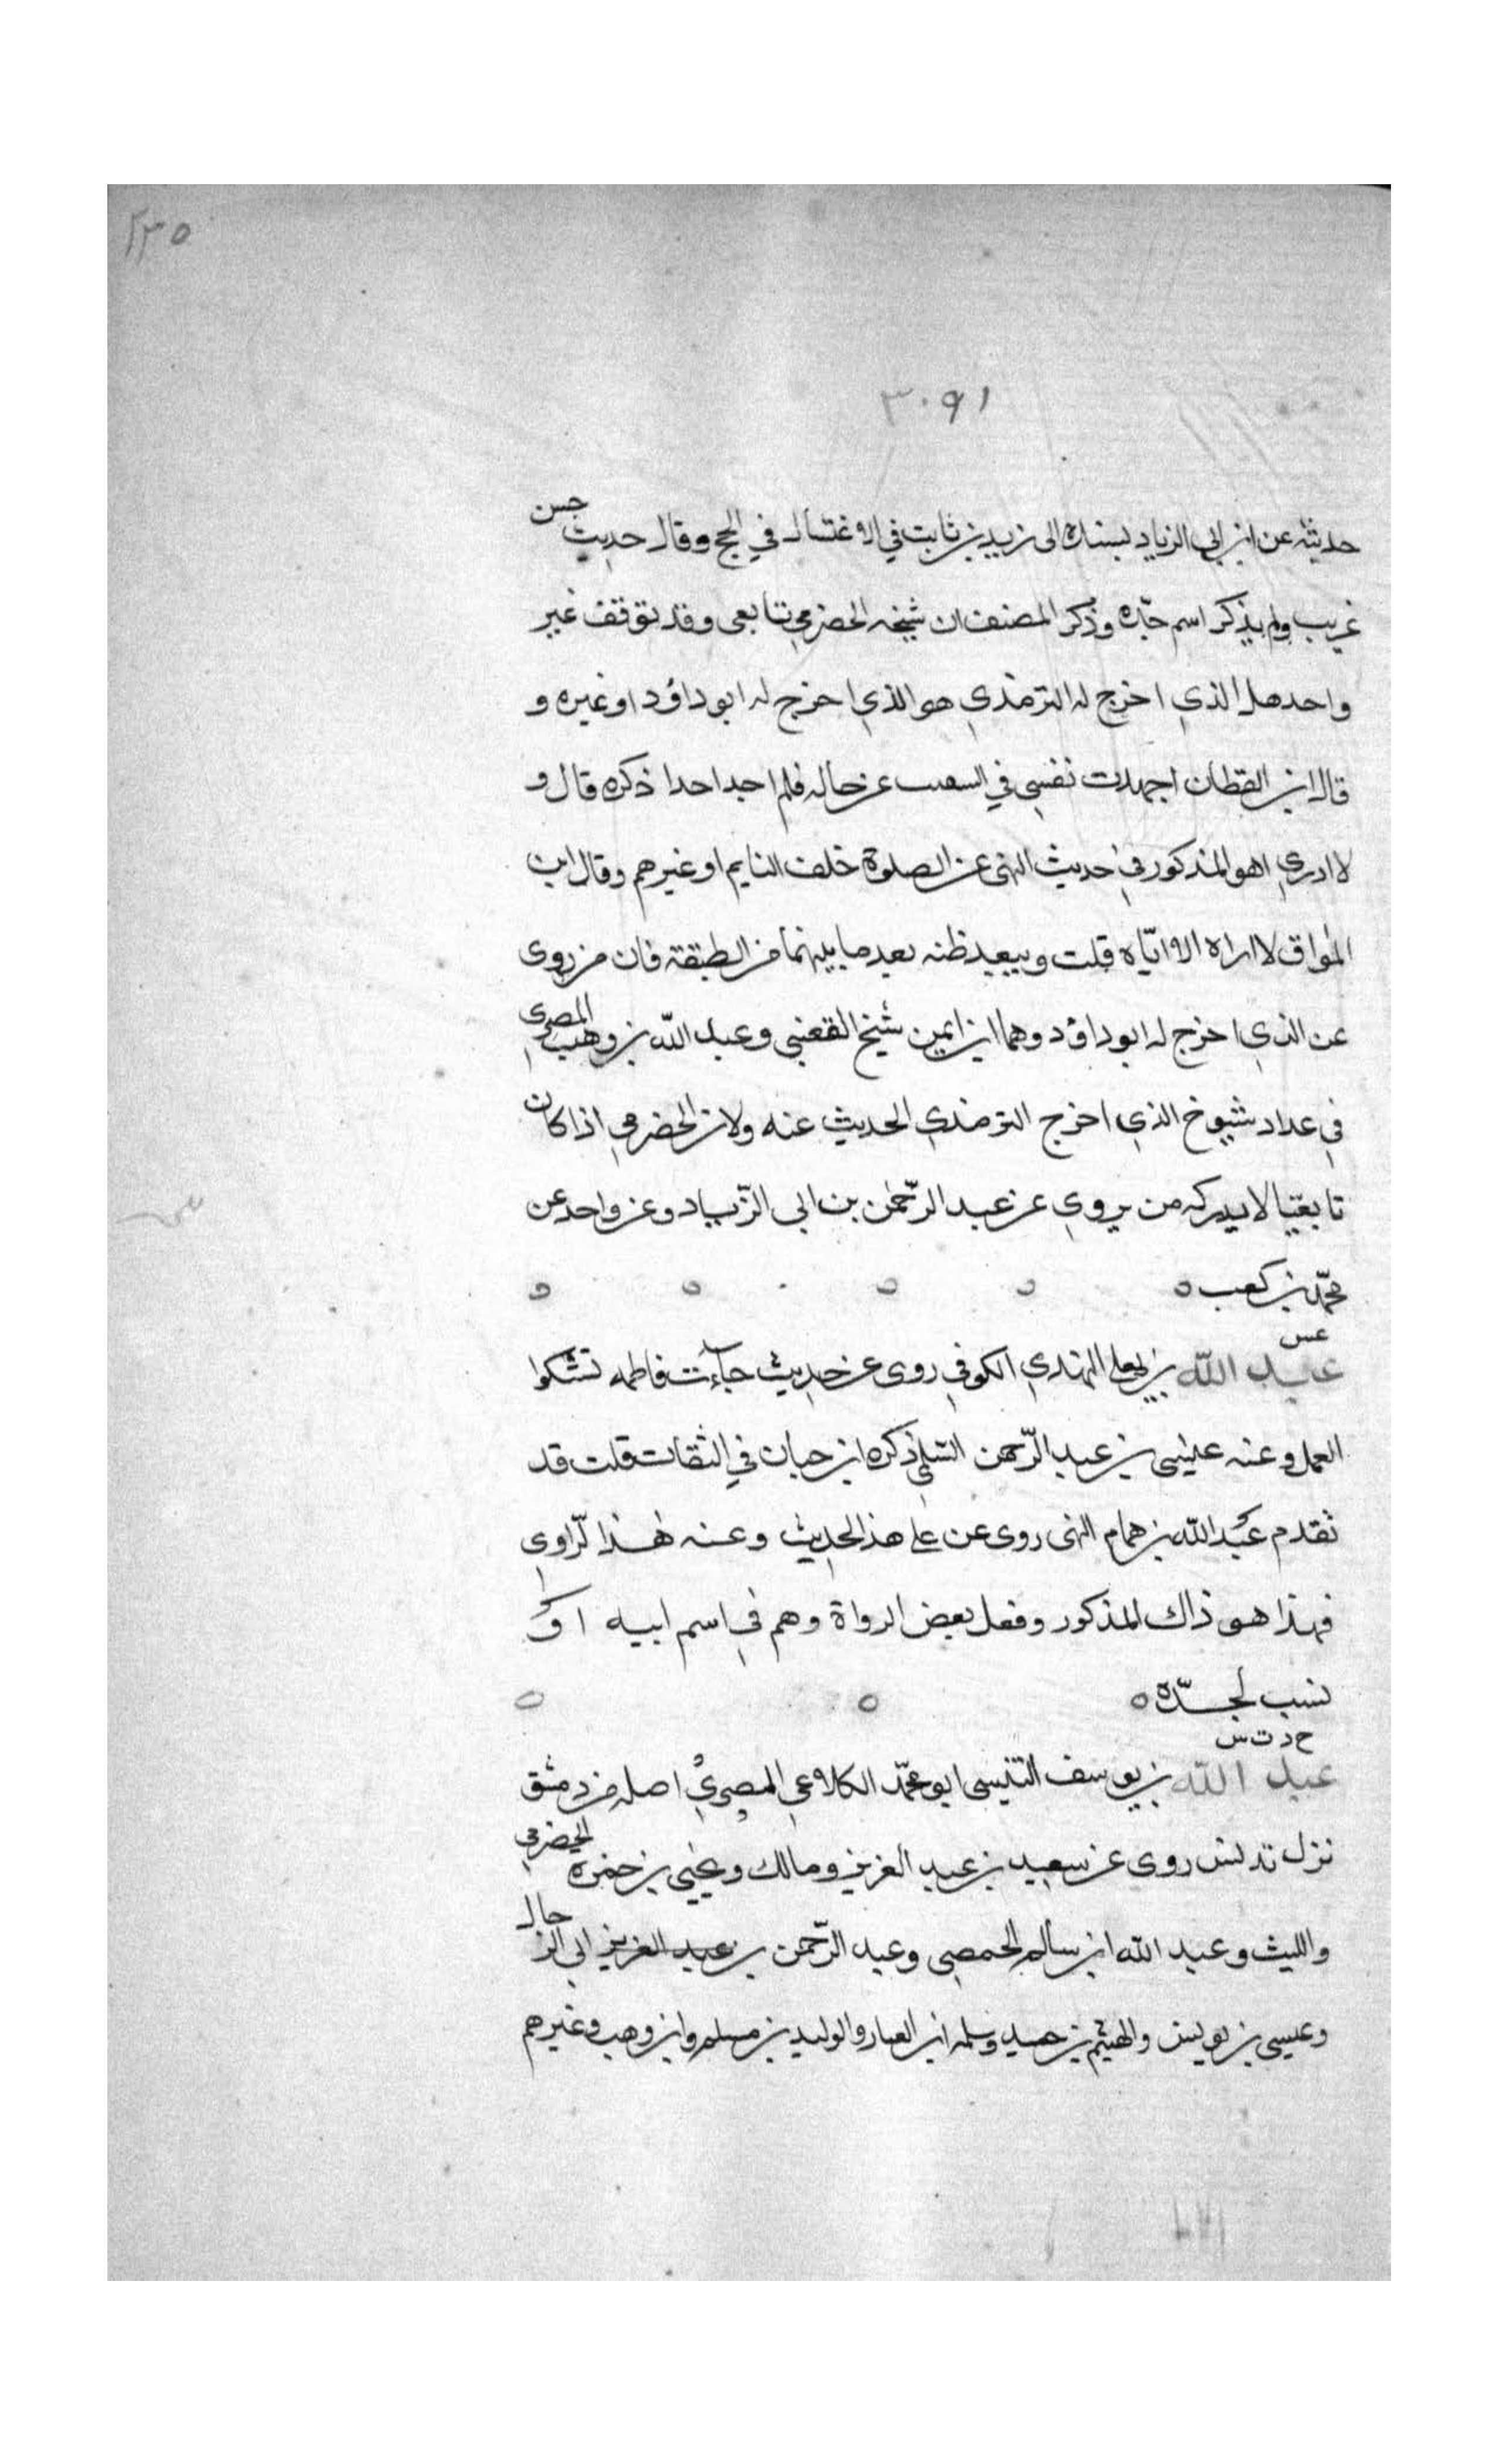 ٢٣٥
٣٠٩١
حديثه عن ابن ابي الزياد بسناده الى زيد بن ثابت في الاغتسال في الحج وقال حديث حسن
غريب ولم يذكر اسم جده وذكر المصنف ان شيخه الحضرمي تابعي وقد توقف غير
واحد هل الذي اخرج له الترمذي هو الذي اخرج له ابو داؤد او غيره و
قال ابن القطان اجهدت نفسي في عن حاله فلم اجد احدا ذكره قال و
لا ادري اهو المذكور في حديث النهى عن الصلوة خلف النايم او غيرهم وقال ابن
المواق لا اراه الا اياه قلت ويبعيد ظنه بعد ما بينهما من الطبقة فان من روى
عن الذي اخرج له ابو داؤد وهما ابن ايمن شيخ القعنبي وعبد الله بن وهب المصري
في عداد شيوخ الذي اخرج الترمذي الحديث عنه ولان الحضرمي اذا كان
تابعيا لا يدركه من يروي عن عبد الرحمن بن ابي الزياد وعن واحد عن
محمد بن كعب ه
عس
عبد الله بن يعلى النهدي الكوفي روى عن حديث جاءت فاطمه تشكوا
العمل وعنه عيسى بن عبد الرحمن السلمي ذكره ابن حبان في الثقات قلت قد
تقدم عبد الله بن همام النهى روى عن على هذ الحديث وعنه هذا لراوي
فهذا هو ذاك المذكور وفعل بعض الرواة وهم في اسم ابيه او
نسب لجده ه
خ د ت س
عبد الله بن يوسف التنيسي ابو محمد الكلاعي المصري اصله من دمشق
نزل تدنس روى عن سعيد بن عبد العزيز ومالك ويحيى بن حمزه الحضرمي
والليث وعبد الله ابن سالم الحمصي وعبد الرحمن بن عبد العزيز ابي الرجال
وعيسى بن يونس والهيثم بن حميد وسلمه ابن العيار والوليد بن مسلم وابن وهب وغيرهم